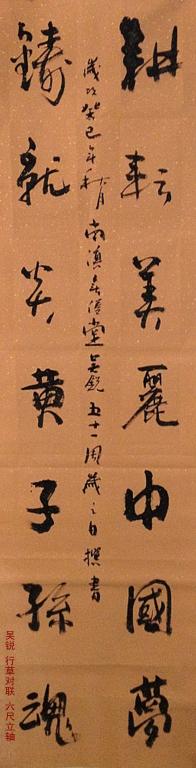 耕耘美麗中國夢
歲次癸巳年秋月南滇堂吳銳五十一周歲之撰書
鑄就炎黃子孫魂
吴锐 行草对联 六尺立轴